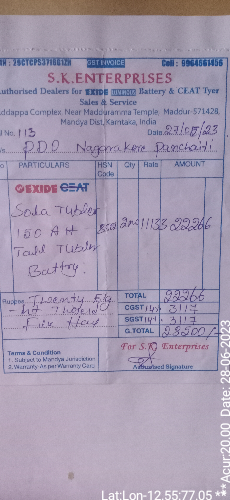 GST INVOICE Cell : 9964561456
S.K.ENTERPRISES
Authorised Dealers for EXIDE Battery & CEAT Tyer
Sales & Service
Addappa Complex, Near Madduramma Temple, Maddur-571428,
Mandya Dist, Karntaka, India
No. 113 Date
PDO Nagarakere Panchaiti
PARTICULARS HSN Code Qty Rate AMOUNT
EXIDE CEAT
Sola Tubler
150 AH 850 2 11133 22266
Tall Tubler
Battry.
TOTAL 22266
CGST 14% 3117
SGST 14% 3117
G.TOTAL
Rupees Twenty
For S.K. Enterprises
Terms & Condition
1. Subject to Mandya Jurisdiction
2. Warranty As per Warranty Card
Authorised Signature
Lat:Lon-12.55:77.05
**Acur:20.00 Date: 28-06-2023